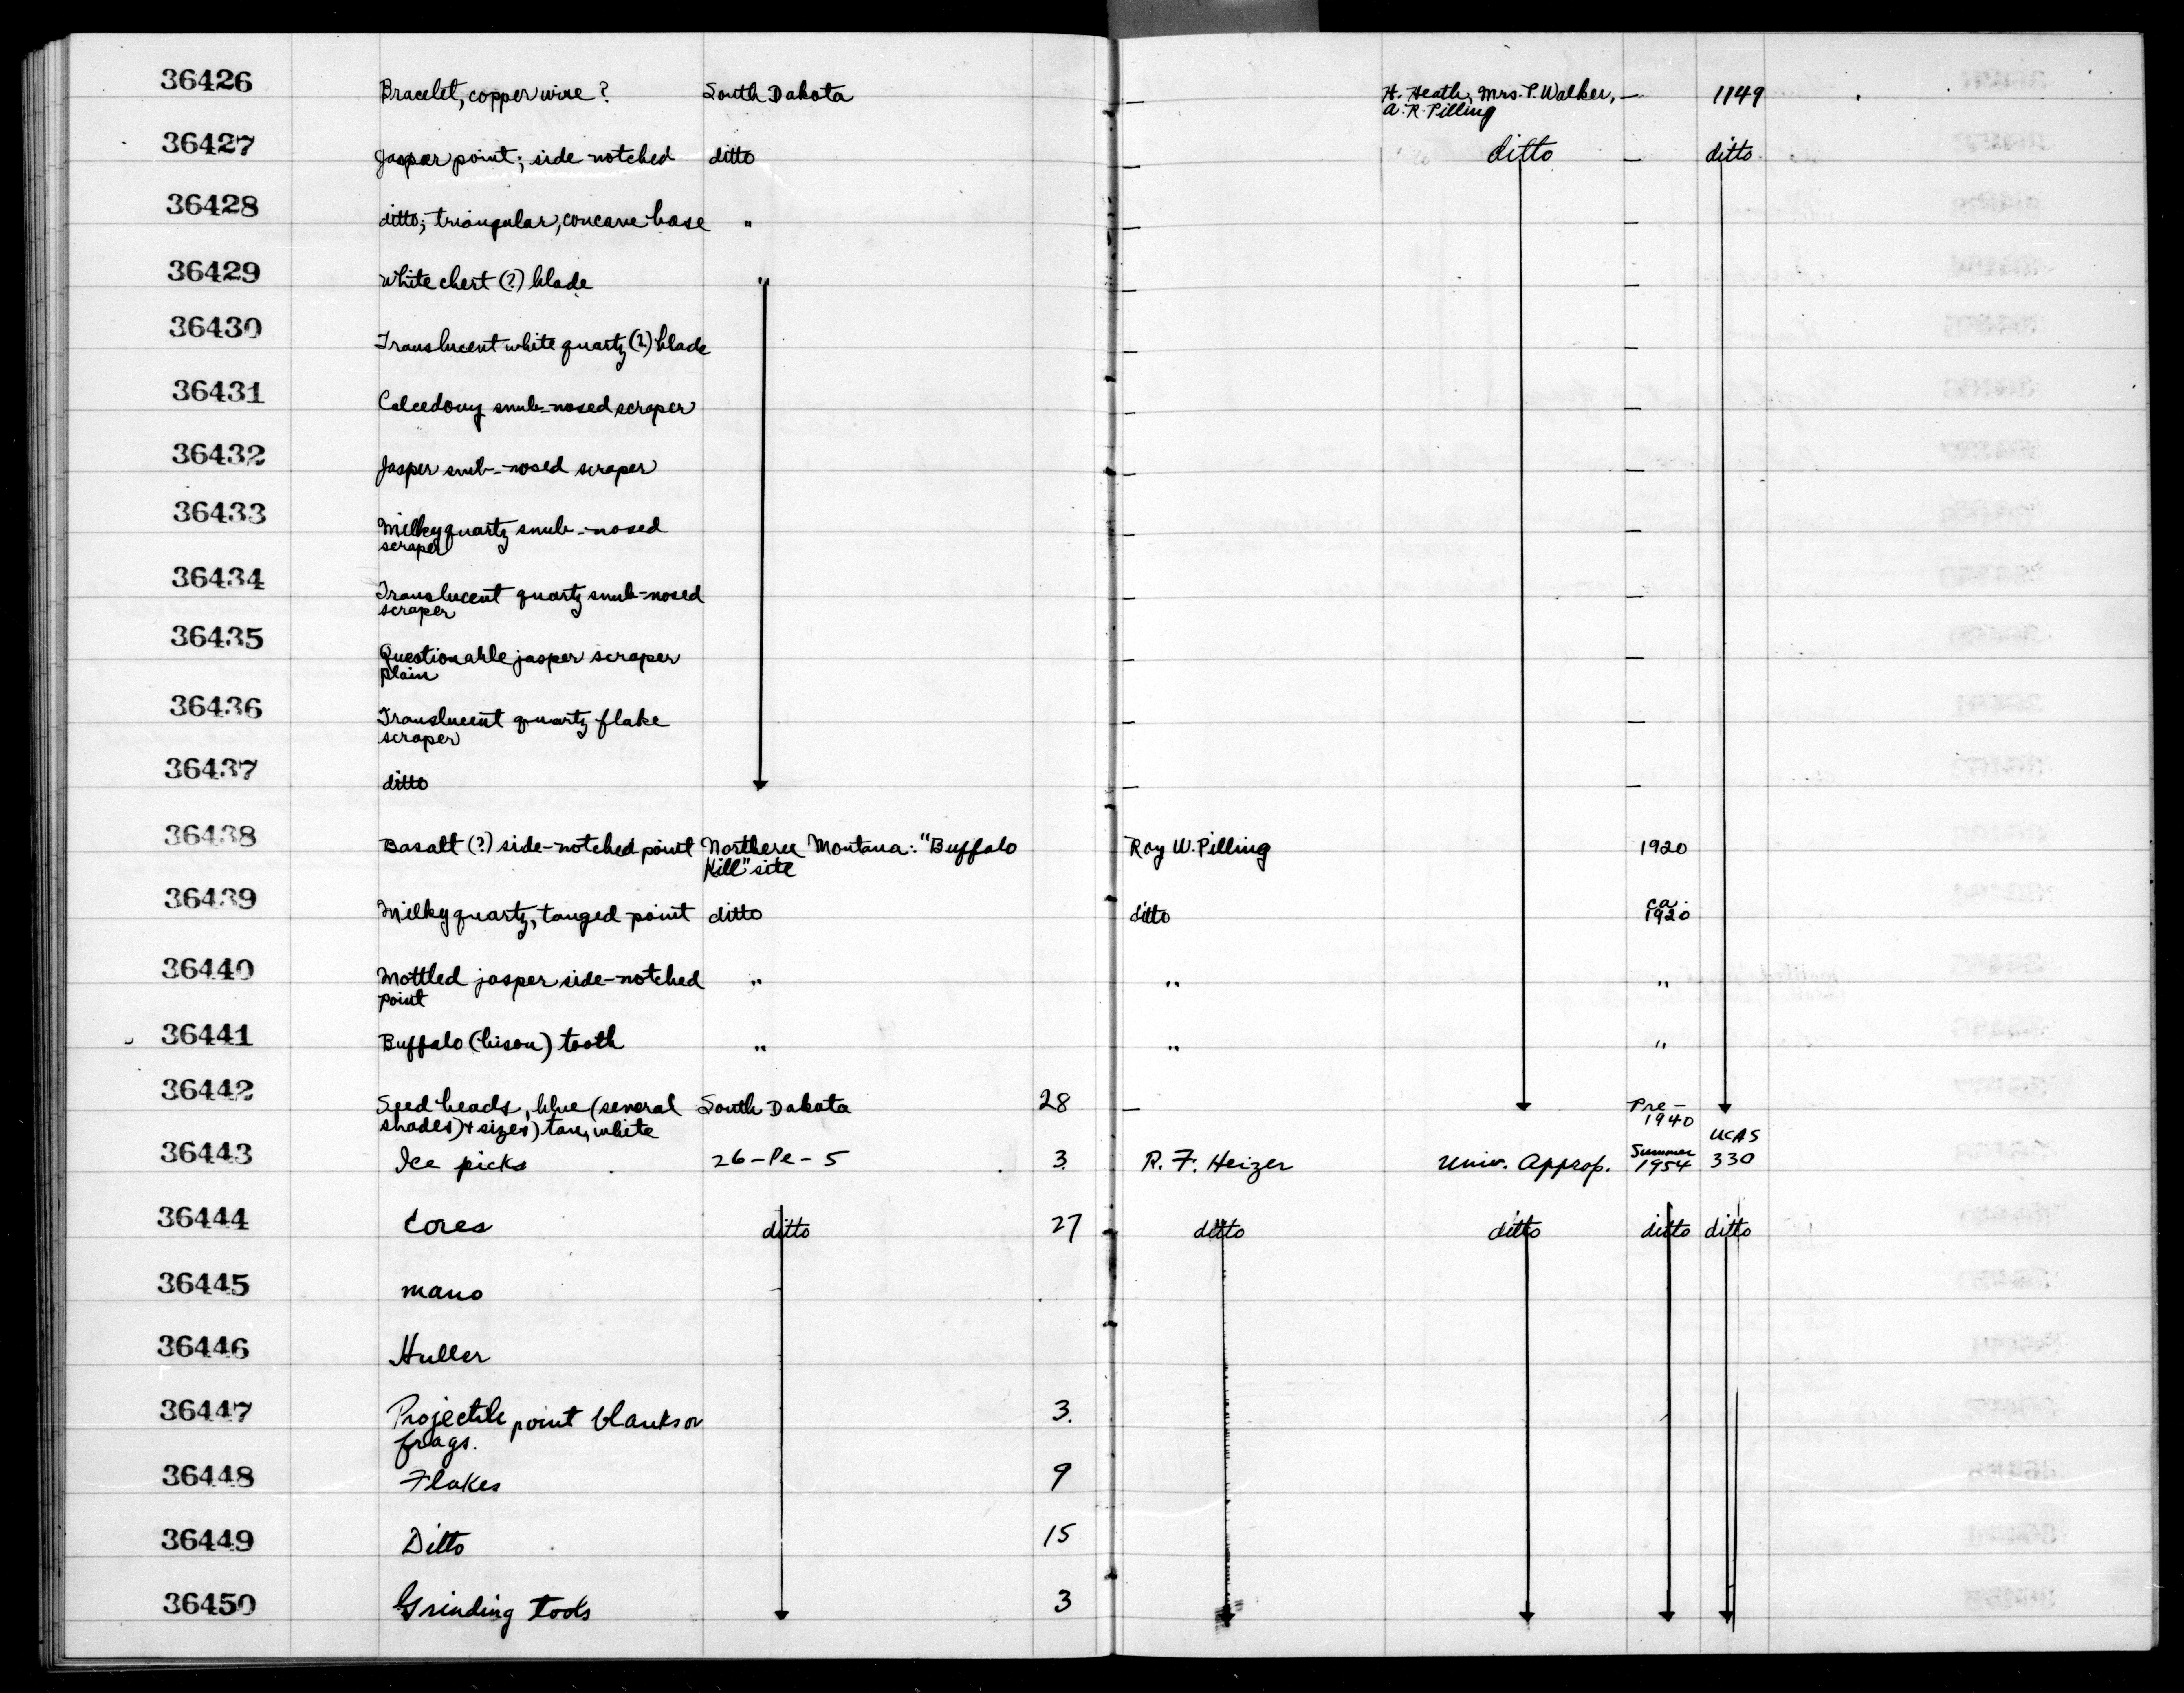 36426 Bracelet, copper wire ? South Dakota — H. Heath, Mrs. P. Walker, — 1149
A. R. Pilling
36427 Jasper point; side-notched ditto — ditto — ditto
36428 ditto; triangular, concave base " — —
36429 White chert (?) blade " — —
36430 Translucent white quartz (?) blade — —
36431 Calcedony snub-nosed scraper — —
36432 Jasper snub-nosed scraper — —
36433 Milky quartz snub-nosed — —
scraper
36434 Translucent quartz snub-nosed — —
scraper
36435 Questionable jasper scraper — —
plain
36436 Translucent quartz flake — —
scraper
36437 ditto — —
36438 Basalt (?) side-notched point Northern Montana: "Buffalo Roy W. Pilling 1920
Kill" site
36439 Milky quartz, tanged point ditto ditto ca.
1920
36440 Mottled jasper side-notched " " "
point
36441 Buffalo (bison) tooth " " "
36442 Seed beads, blue (several South Dakota 28 — Pre-
shades) & sizes) tan, white 1940
UCAS
36443 Ice picks 26-Pe-5 3 R. F. Heizer Univ. Approp. Summer
1954 330
36444 Cores ditto 27 ditto ditto ditto ditto
36445 mano
36446 Huller
36447 Projectile point blanks or 3.
frags.
36448 Flakes 9
36449 Ditto 15
36450 Grinding tools 3